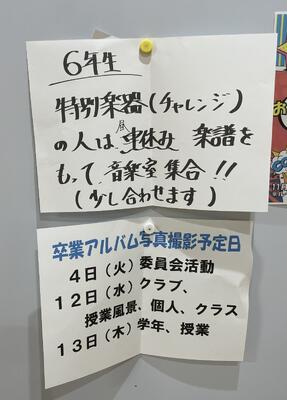 6年生
特別楽器(チャレンジ)
の人は、昼休み 楽譜を
もって、音楽室集合!!
(少し合わせます)
卒業アルバム写真撮影予定日
4日(火)委員会活動
12日(水)クラブ、
授業風景、個人、クラス
13日(木)学年、授業
11月